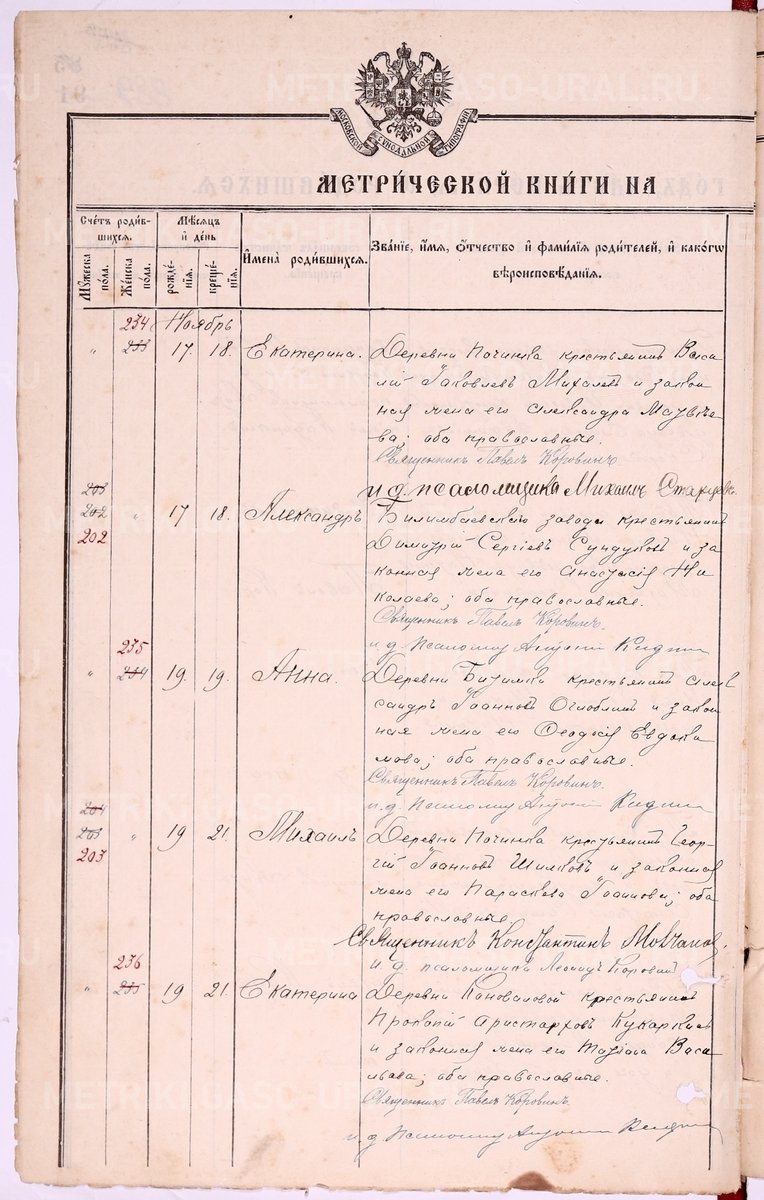 МОСКОВСКОЙ СѴНОДАЛЬНОЙ ТИПОГРАФІИ
МЕТРИ́ЧЕСКОЙ КНИ́ГИ НА
Сче́тъ роди́в-
шихся.
Му́жеска по́ла.
Же́нска по́ла.
Мѣ́сяцъ
и҆ де́нь
рожде́-
нїя.
креще́-
нїя.
И҆мена̀ роди́вшихся.
Зва́нїе, и҆́мя, ѻ҆́тчество и҆ фами́лїя роди́телей, и҆ како́гѡ
вѣроисповѣ́данїя.
234 Ноябрь
" 233 17. 18. Екатерина. Деревни Починка крестьянинъ Васи
лій Іаковлевъ Михалевъ и закон
ная жена его Александра Матвѣе
ва; оба православные.
Священникъ Павелъ Коровинъ
и. д. псаломщика Михаилъ Старцевъ.
203
202 " 17 18. Александръ Билимбаевскаго завода крестьянинъ
202 Димитрій Сергіевъ Сундуковъ и за
конная жена его Анастасія Ни
колаева; оба православные.
Священникъ Павелъ Коровинъ.
и. д.
235
" 234 19. 19. Анна. Деревни Битимки крестьянинъ Алек
сандръ Іоанновъ Оглоблинъ и закон
ная жена его Ѳеодосія Евдоки
мова; оба православные.
Священникъ Павелъ Коровинъ.
и. д.
204
203 " 19 21. Михаилъ Деревни Починка крестьянинъ Геор
203 гій Іоанновъ Шилковъ и законная
жена его Параскева Іоаннова; оба
православные.
Священникъ Константинъ Мовчановъ.
236 и. д. псаломщика Леонидъ
" 235 19 21. Екатерина Деревни Коноваловой крестьянинъ
Прокопій Аристарховъ Кукаркинъ
и законная жена его Васи
льева; оба православные.
Священникъ Павелъ Коровинъ.
и. д.
METRIKI.UASO-URAL.RU